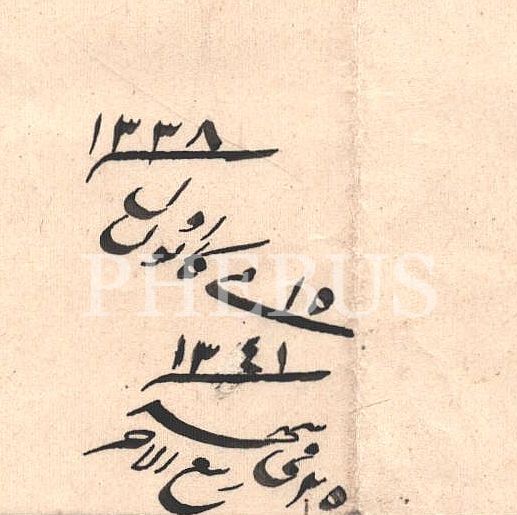 ١٣٣٨
كانون اول
١٥
PHEBUS
١٣٤١
فى ٢٥
ربيع الاخر